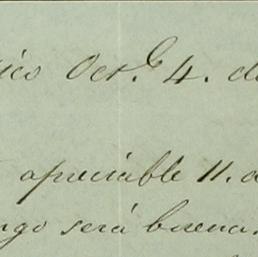 ico Oct.e 4. de
apreciable 11. d
ngo será buena.